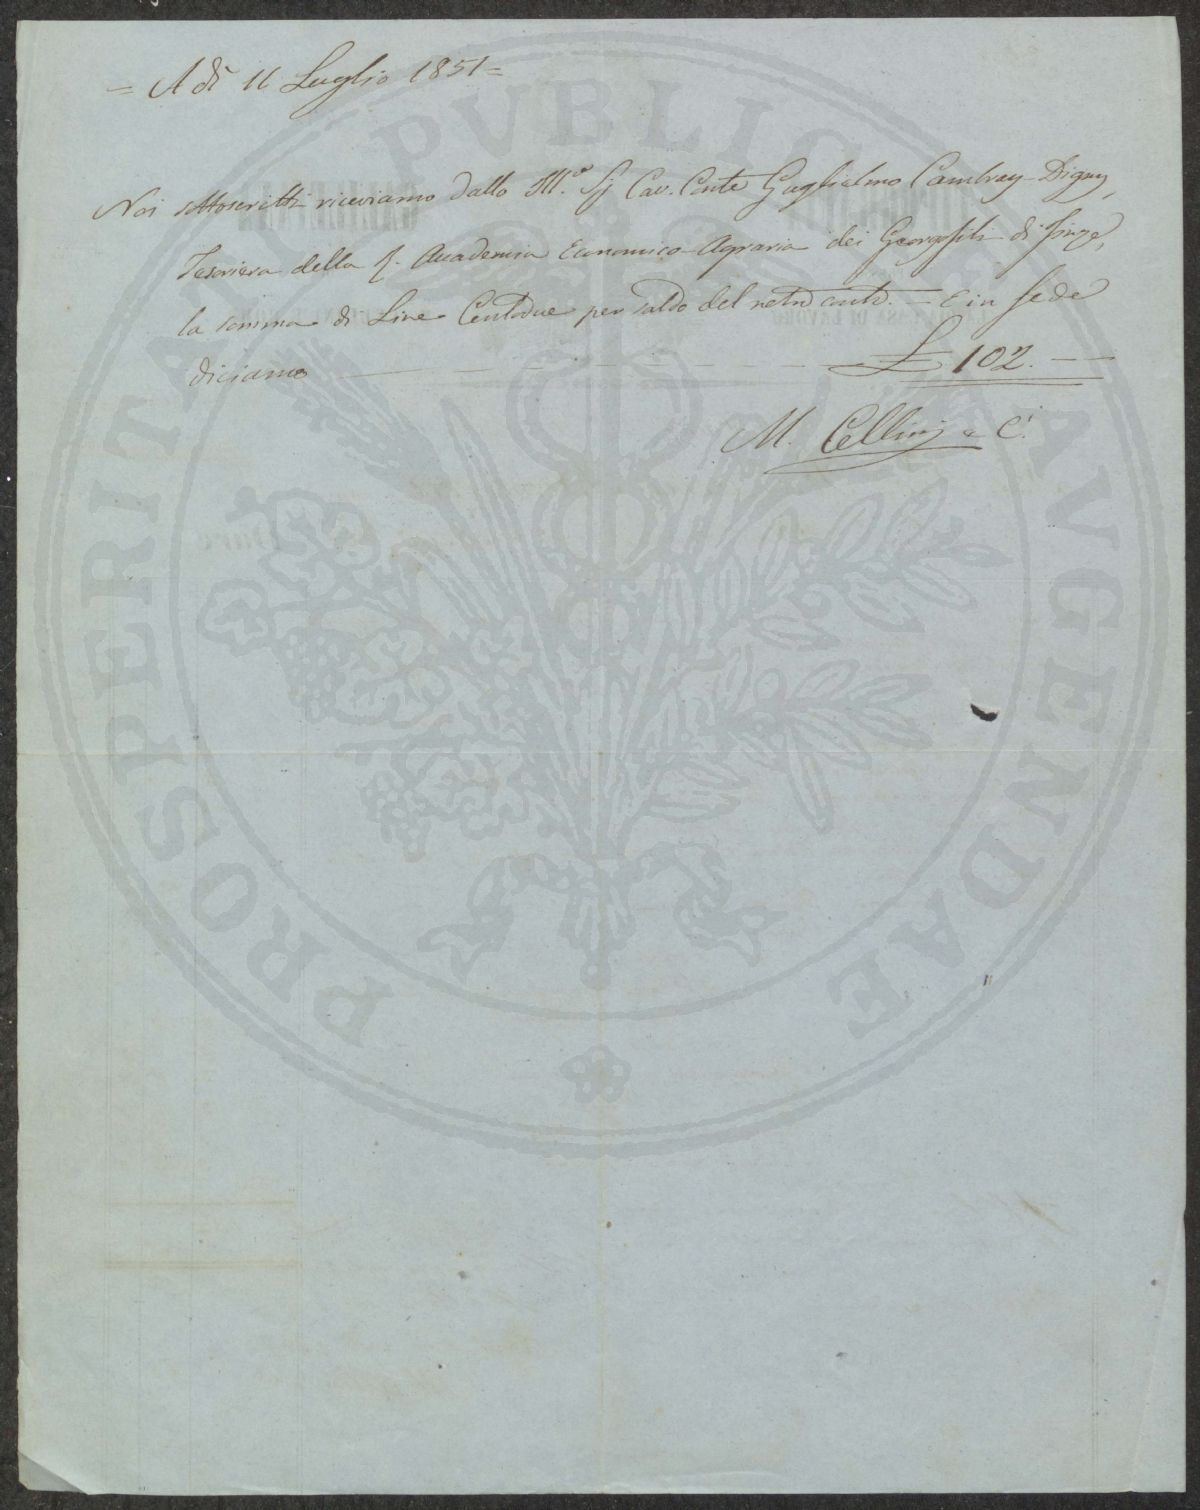 = A dì 11 Luglio 1851 =
Noi sottoscritti riceviamo dallo Ill.º Sig Cav. Conte Guglielmo Cambray-Digny,
Tesoriere della R. Accademia Economico-Agraria dei Georgofili di Firenze,
la somma di Lire Centodue per saldo del retro conto. — E in fede
diciamo — £ 102. —
M. Cellini e C.i
PROSPERITATI PVBLICAE AVGENDAE